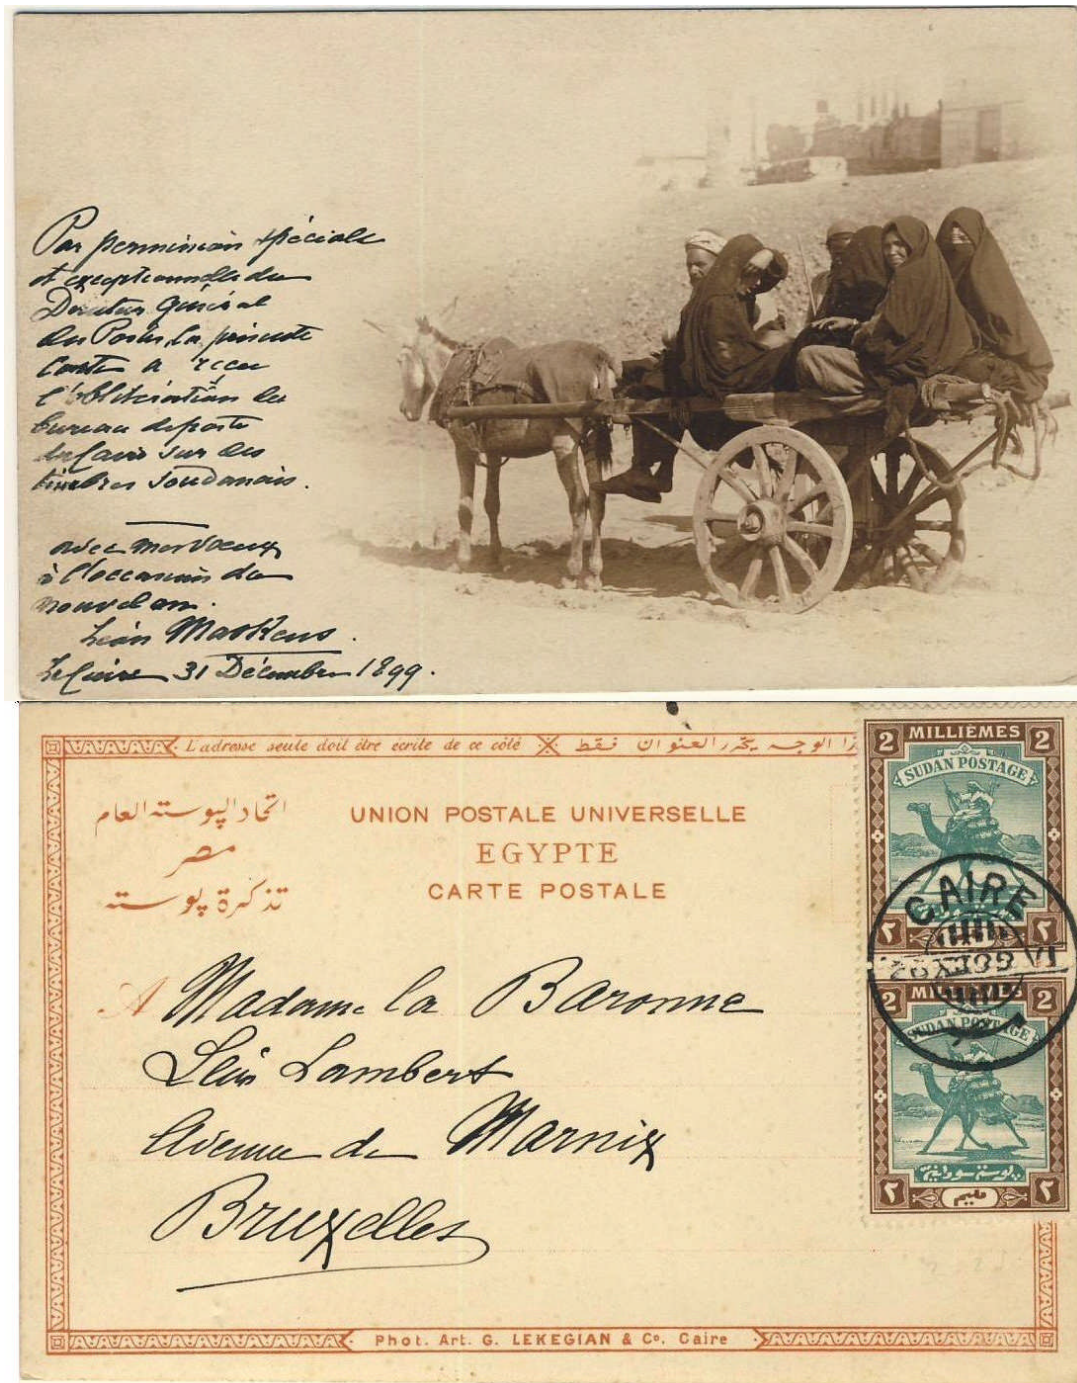 Par permission spéciale
et exceptionnelle du
Directeur Général
des Postes, la présente
Carte a reçu
l'oblitération du
bureau de poste
du Caire sur des
timbres Soudanais.
avec mes voeux
à l'occasion du
nouvel an.
Léon Maskens.
Le Caire 31 Décembre 1899.
L'adresse seule doit être ecrite de ce côté
ذا الوجه يحرر العنوان فقط
اتحاد البوسته العام
مصر
تذكرة بوسته
UNION POSTALE UNIVERSELLE
EGYPTE
CARTE POSTALE
2 MILLIÈMES 2
SUDAN POSTAGE
CAIRE
٢ ٢
2 MILLIÈMES 2
SUDAN POSTAGE
بوستة سودانية
٢ مليم ٢
A Madame la Baronne
Léon Lambert
Avenue de Marnix
Bruxelles
Phot. Art. G. LEKEGIAN & Co. Caire